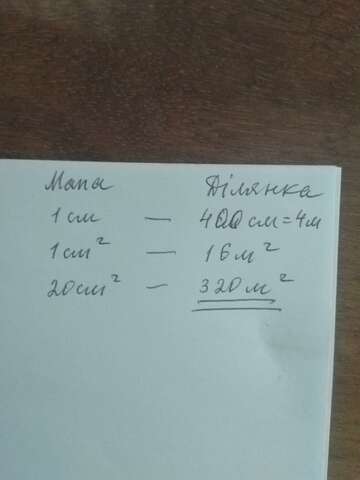 Мапа Ділянка
1 см — 400 см = 4 м
1 см² — 16 м²
20 см² — 320 м²